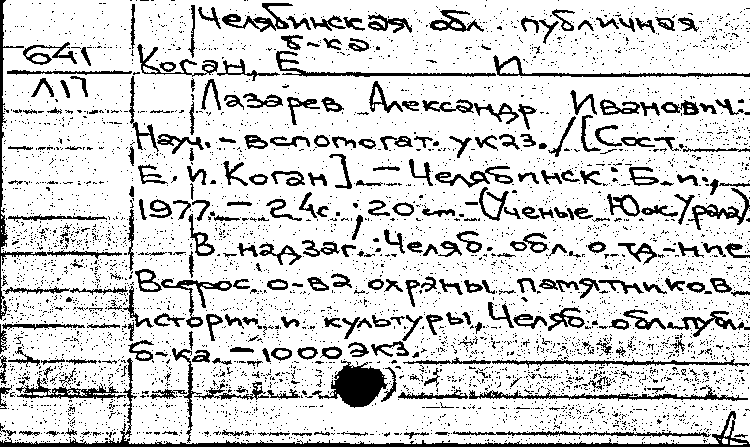 Челябинская обл. публичная
б-ка.
641 Коган, Е И
Л17 Лазарев Александр Иванович:
Науч.-вспомогат. указ. / [Сост.
Е. И. Коган]. — Челябинск: Б. и.,
1977. — 24с.; 20 см. — (Ученые Юж Урала)
В надзаг.: Челяб. обл. отд-ние
Всерос. о-ва охраны памятников
истории и культуры, Челяб. обл. публ.
б-ка. — 1000 экз.